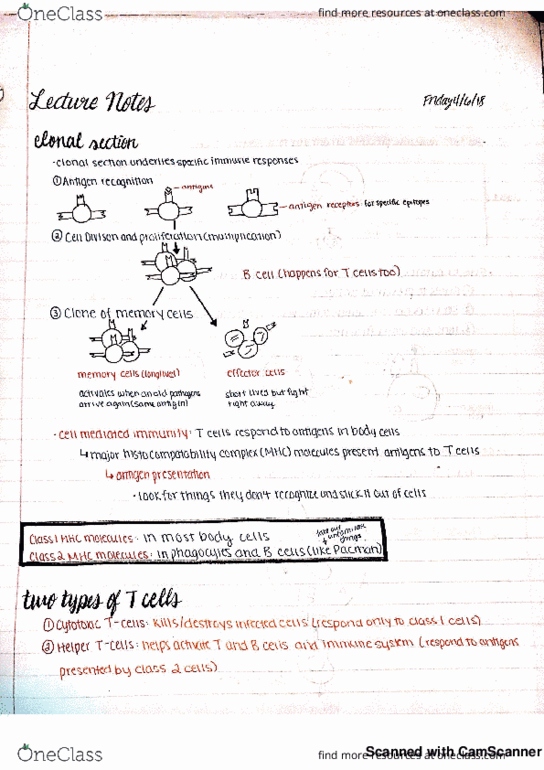 OneClass
find more resources at oneclass.com
Lecture Notes
Friday 4/6/18
clonal section
·clonal section underlies specific immune responses
①Antigen recognition
antigens
antigen receptors for specific epitopes
② Cell Divison and proliferation (multiplication)
B cell (happens for T cells too)
③ Clone of memory cells
memory cells (long lived)
effector cells
activates when an old pathogens
arrive again (same antigen)
short lived but fight
right away
·cell mediated immunity: T cells respond to antigens in body cells
↳major histocompatability complex (MHC) molecules present antigens to T cells
↳antigen presentation
·look for things they don't recognize and stick it out of cells
Class 1 MHC molecules: in most body cells
Class 2 MHC molecules: in phagocytes and B cells (like Pacman)
things
two types of T cells
① Cytotoxic T-cells: kills/destroys infected cells (respond only to class 1 cells)
② Helper T-cells: helps activate T and B cells and immune system (respond to antigens
presented by class 2 cells)
OneClass
find more resources at oneclass.com
Scanned with CamScanner